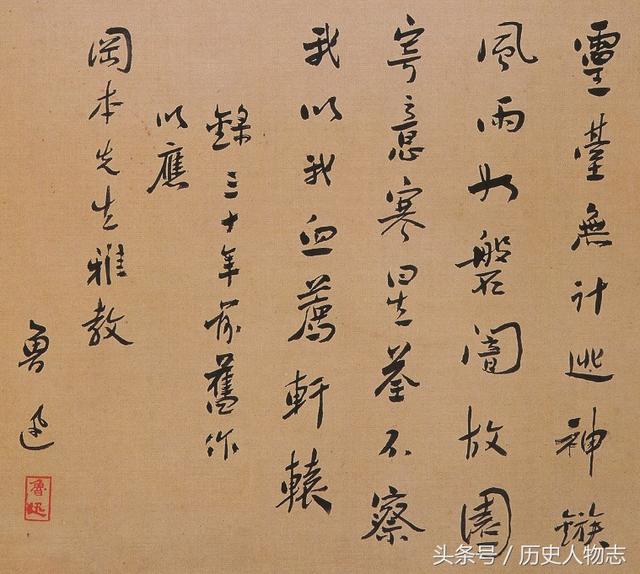 靈臺無計逃神鏃
風雨如磐闇故園
寄意寒星荃不察
我以我血薦軒轅
錄三十年前舊作
以應
岡本先生雅教
魯迅
魯迅
头条号 / 历史人物志